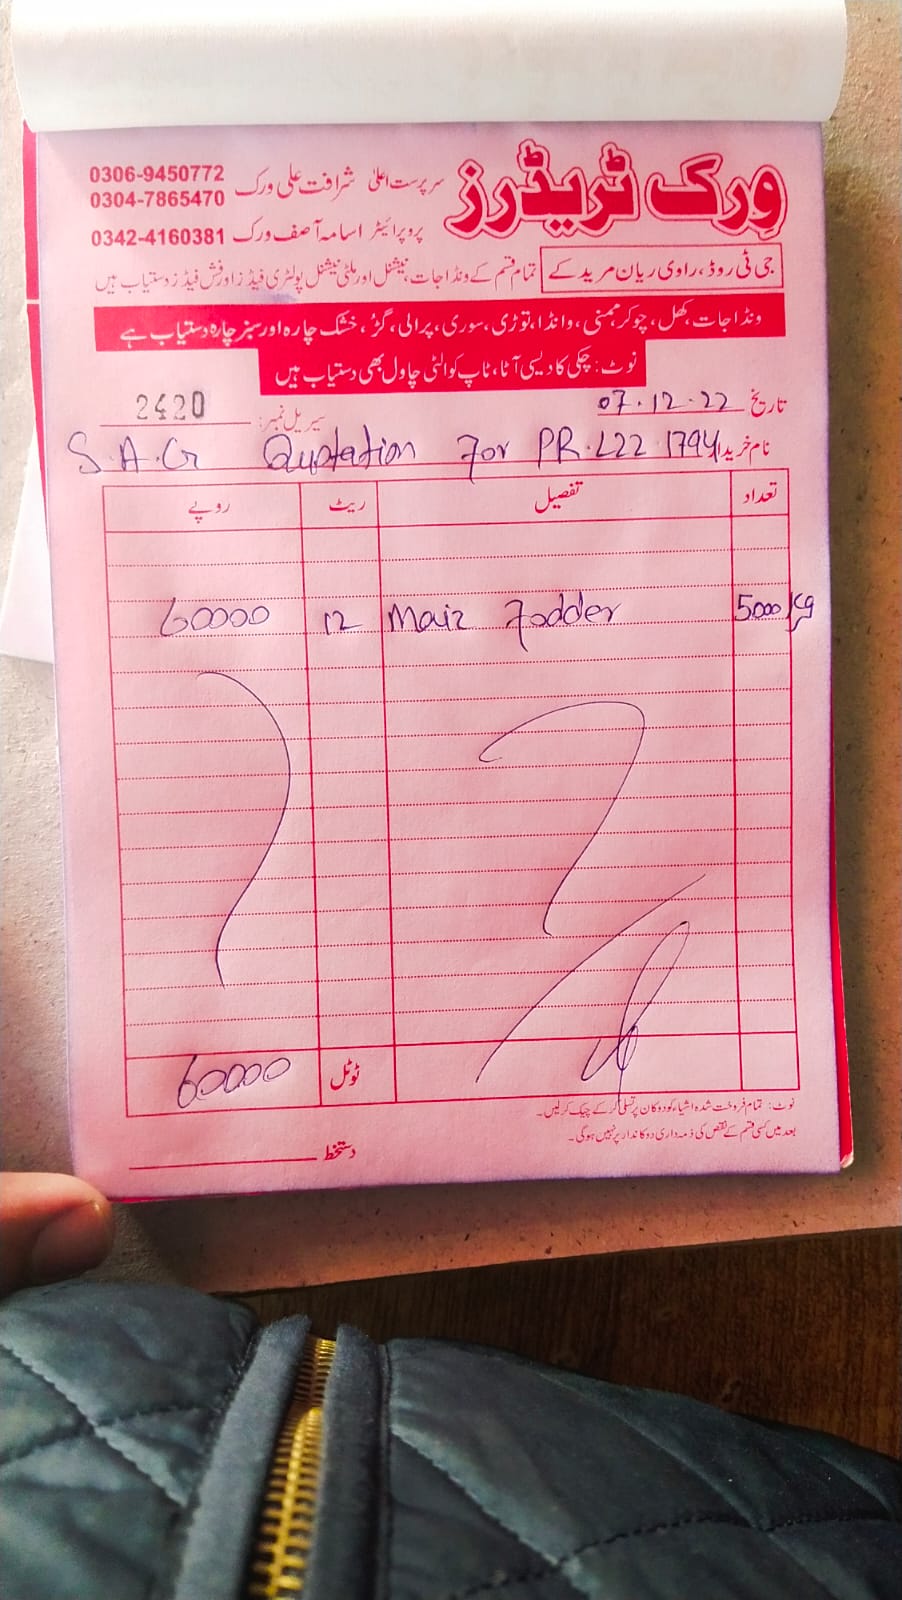 ورک ٹریڈرز
سرپرست اعلیٰ شرافت علی ورک 0306-9450772
0304-7865470
پروپرائیٹر اسامہ آصف ورک 0342-4160381
جی ٹی روڈ، راوی ریان مریدکے
تمام قسم کے ونڈا جات، نیشنل اور ملٹی نیشنل پولٹری فیڈز اور فش فیڈز دستیاب ہیں
ونڈا جات، کھل، چوکر، ممنی، وانڈا، توڑی، سوری، پرالی، گڑ، خشک چارہ اور سبز چارہ دستیاب ہے
نوٹ: چکی کا دیسی آٹا، ٹاپ کوالٹی چاول بھی دستیاب ہیں
تاریخ 07.12.22 سیریل نمبر: 2420
نام خریدار S.A.G Quotation For PR.L22 1794
تعداد تفصیل ریٹ روپے
5000 kg Maiz Fodder 12 60000
ٹوٹل 60000
نوٹ: تمام فروخت شدہ اشیاء کو دوکان پر تسلی کر کے چیک کر لیں۔
بعد میں کسی قسم کے نقص کی ذمہ داری دوکاندار پر نہیں ہوگی۔
دستخط